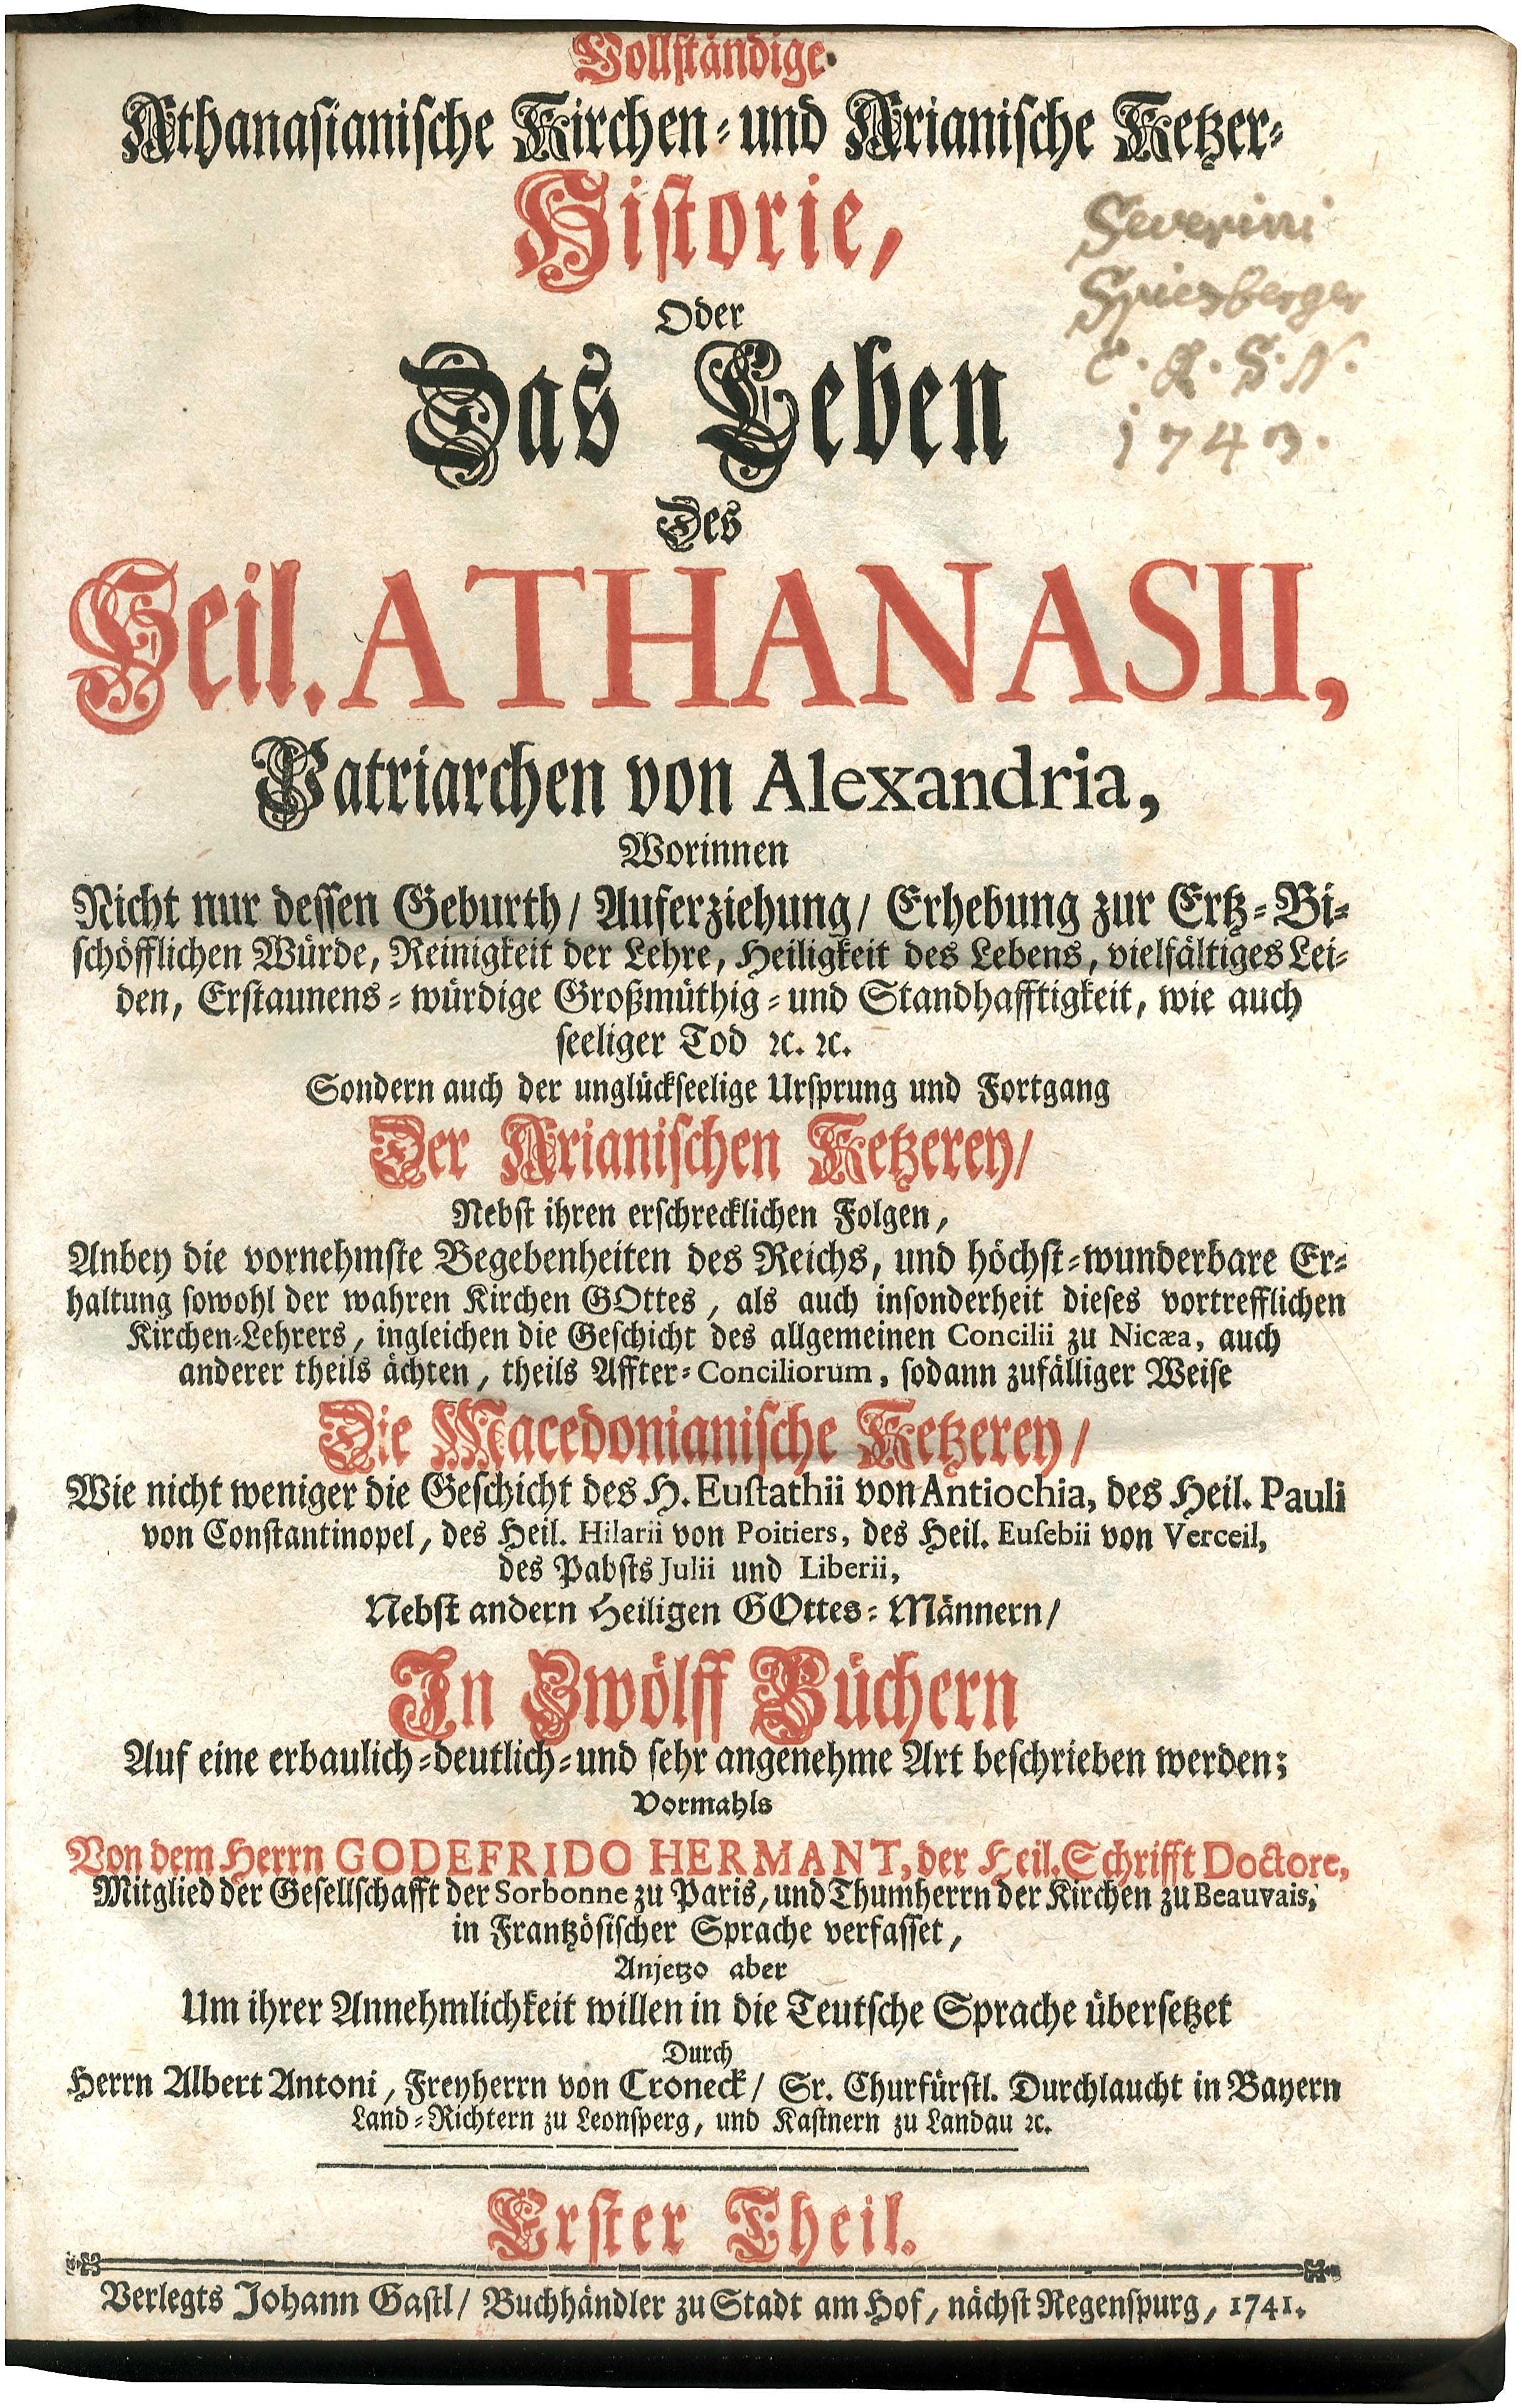 Vollständige
Athanasianische Kirchen- und Arianische Ketzer-
Historie,
Oder
Das Leben
Des
Heil. ATHANASII,
Patriarchen von Alexandria,
Worinnen
Nicht nur dessen Geburth/ Auferziehung/ Erhebung zur Ertz-Bi-
schöfflichen Würde, Reinigkeit der Lehre, Heiligkeit des Lebens, vielfältiges Lei-
den, Erstaunens-würdige Großmüthig- und Standhafftigkeit, wie auch
seeliger Tod ꝛc. ꝛc.
Sondern auch der unglückseelige Ursprung und Fortgang
Der Arianischen Ketzerey/
Nebst ihren erschrecklichen Folgen,
Anbey die vornehmste Begebenheiten des Reichs, und höchst-wunderbare Er-
haltung sowohl der wahren Kirchen GOttes, als auch insonderheit dieses vortrefflichen
Kirchen-Lehrers, ingleichen die Geschicht des allgemeinen Concilii zu Nicæa, auch
anderer theils ächten, theils Affter-Conciliorum, sodann zufälliger Weise
Die Macedonianische Ketzerey/
Wie nicht weniger die Geschicht des H. Eustathii von Antiochia, des Heil. Pauli
von Constantinopel, des Heil. Hilarii von Poitiers, des Heil. Eusebii von Verceil,
des Pabsts Julii und Liberii,
Nebst andern Heiligen GOttes-Männern/
In Zwölff Büchern
Auf eine erbaulich-deutlich- und sehr angenehme Art beschrieben werden;
Vormahls
Von dem Herrn GODEFRIDO HERMANT, der Heil. Schrifft Doctore,
Mitglied der Gesellschafft der Sorbonne zu Paris, und Thumherrn der Kirchen zu Beauvais,
in Frantzösischer Sprache verfasset,
Anjetzo aber
Um ihrer Annehmlichkeit willen in die Teutsche Sprache übersetzet
Durch
Herrn Albert Antoni, Freyherrn von Croneck/ Sr. Churfürstl. Durchlaucht in Bayern
Land-Richtern zu Leonsperg, und Kastnern zu Landau ꝛc.
Erster Theil.
Verlegts Johann Gastl/ Buchhändler zu Stadt am Hof, nächst Regenspurg, 1741.
Severini
Spiesberger
C. R. S. N.
1743.